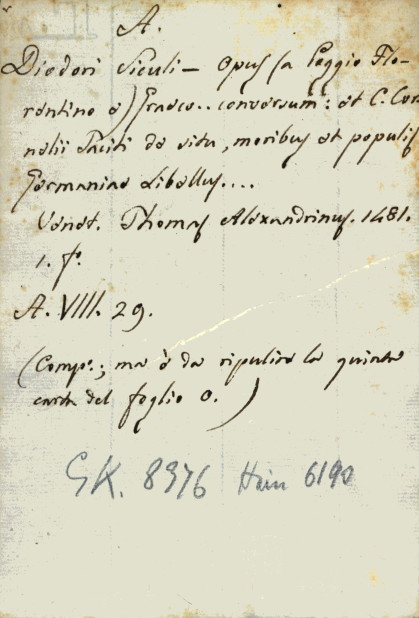 A.
Diodori Siculi – Opus (a Poggio Flo-
rentino e) Graeco.. conversum: et C. Cor
nelii Taciti de situ, moribus et populis
Germaniae Libellus....
Venet. Thomas Alexandrinus. 1481.
1. fº.
A. VIII. 29.
(Compº.; ma è da ripulire la quinta
carta del foglio o. )
GK. 8376 Hain 6190